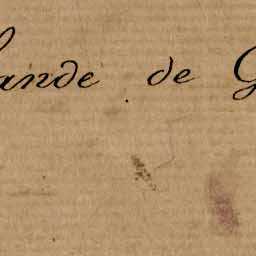 ande de G